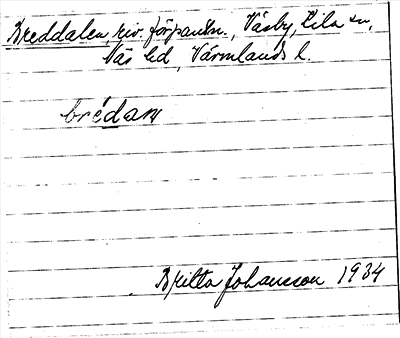 Breddalen, riv. förpantn., Väsby, Lila sn,
Näs hd, Värmlands l.
brédaɳ
Britta Johansson 1934